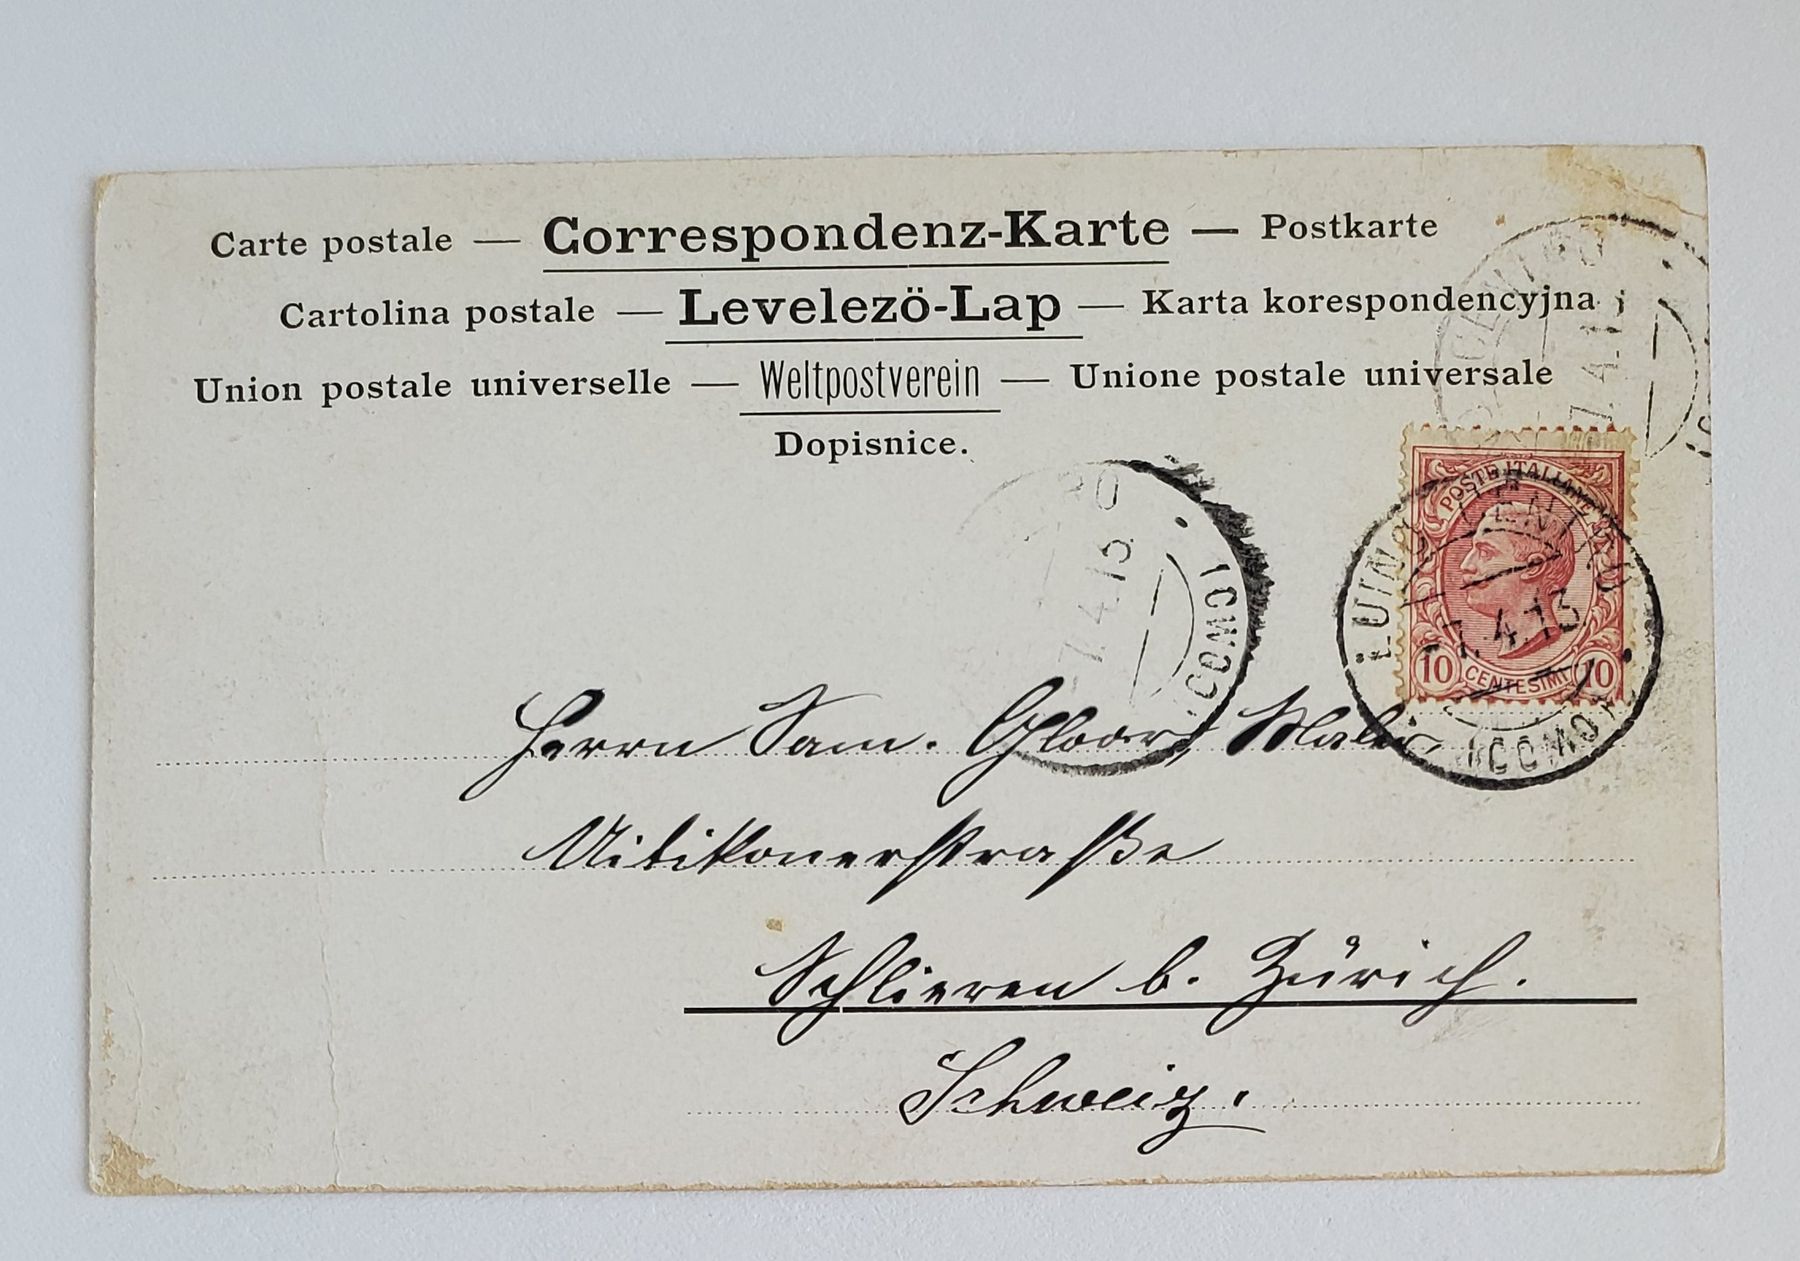 Carte postale — Correspondenz-Karte — Postkarte
Cartolina postale — Levelezö-Lap — Karta korespondencyjna
Union postale universelle — Weltpostverein — Unione postale universale
Dopisnice.
7.4.13
7.4.13
(COMO)
POSTE ITALIANE
LUINO CENTRO
7.4.13
10 CENTESIMI 10
(COMO)
Herrn Sam. Gloor, Maler
Uitikonerstraße
Schlieren b. Zürich.
Schweiz.